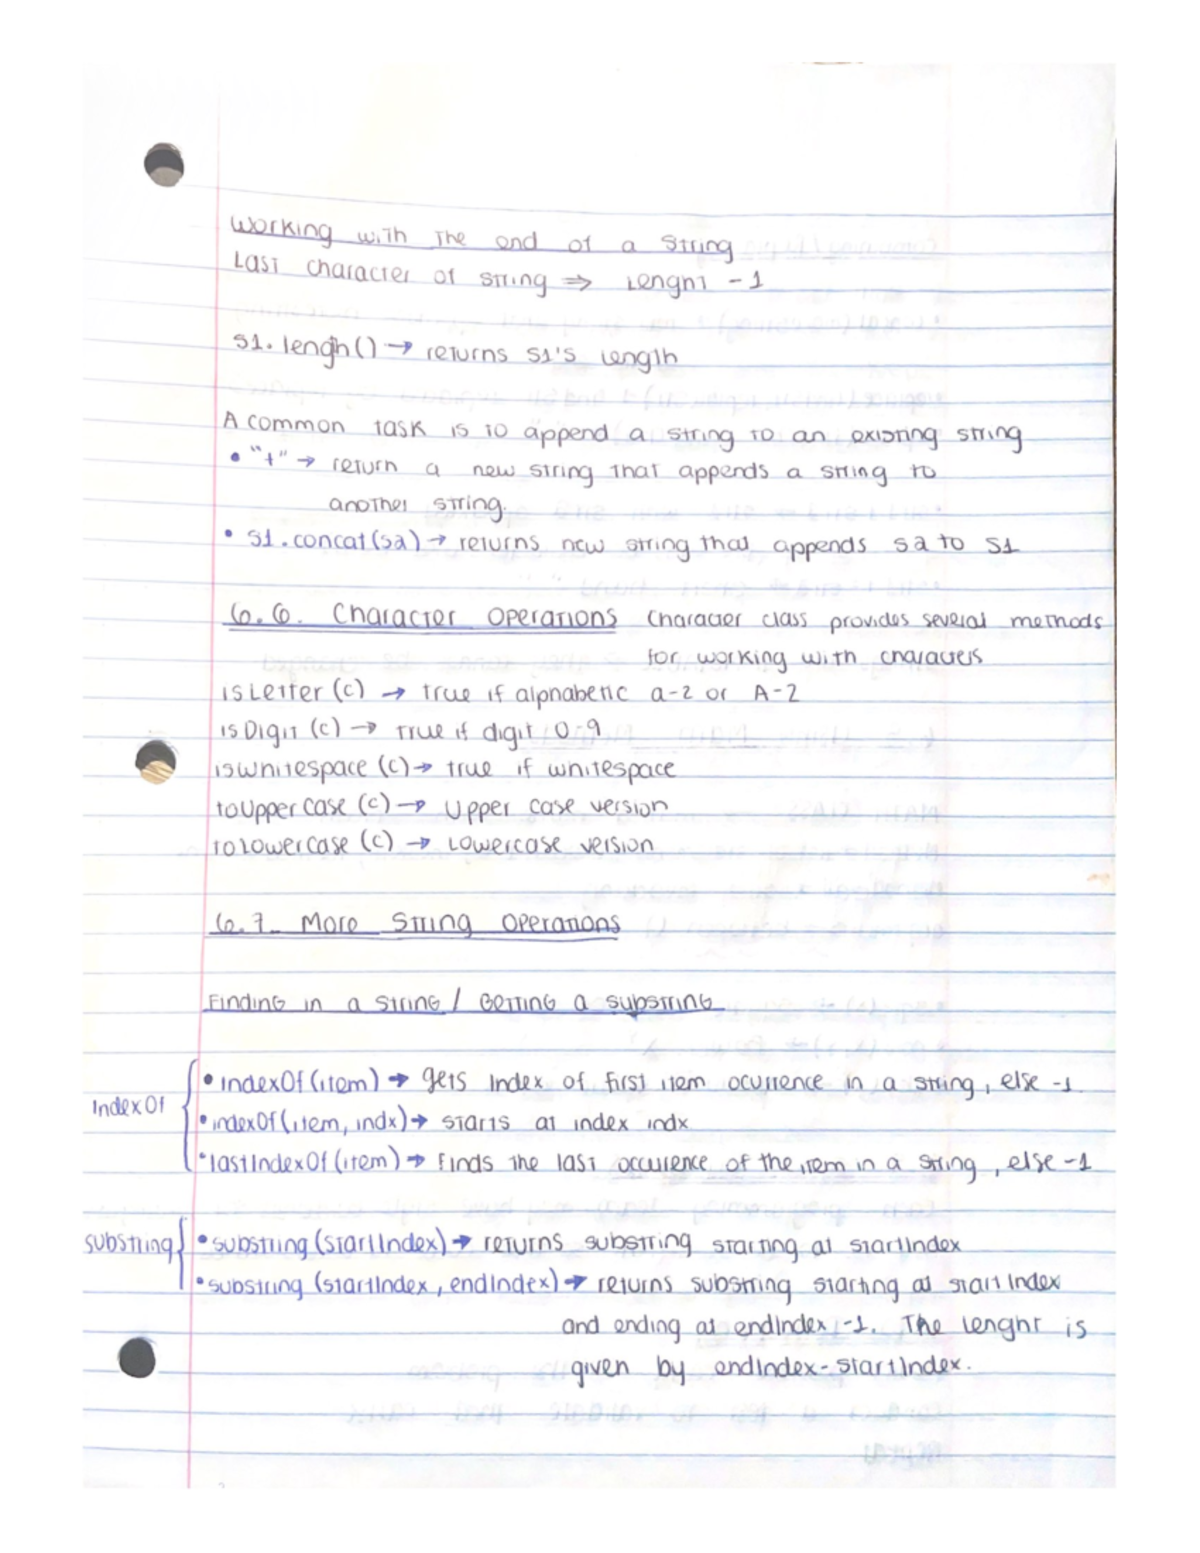 Working with the end of a string
Last character of string ⇒ Lenght - 1
s1.lengh() → returns s1's length
A common task is to append a string to an existing string
• "+" → return a new string that appends a string to
another string.
• s1.concat(s2) → returns new string that appends s2 to s1
6.6. Character Operations Character class provides several methods
for working with characters
isLetter (c) → true if alphabetic a-z or A-Z
isDigit (c) → true if digit 0-9
isWhitespace (c) → true if whitespace
toUpperCase (c) → Upper case version
toLowercase (c) → Lowercase version
6.7 More String Operations
Finding in a string / Getting a substring
IndexOf
• indexOf (item) → gets index of first item ocurrence in a string, else -1
• indexOf (item, indx) → starts at index indx
• lastIndexOf (item) → finds the last occurence of the item in a string, else -1
substring
• substring (startIndex) → returns substring starting at startIndex
• substring (startIndex, endIndex) → returns substring starting at startIndex
and ending at endIndex -1. The lenght is
given by endIndex-startIndex.